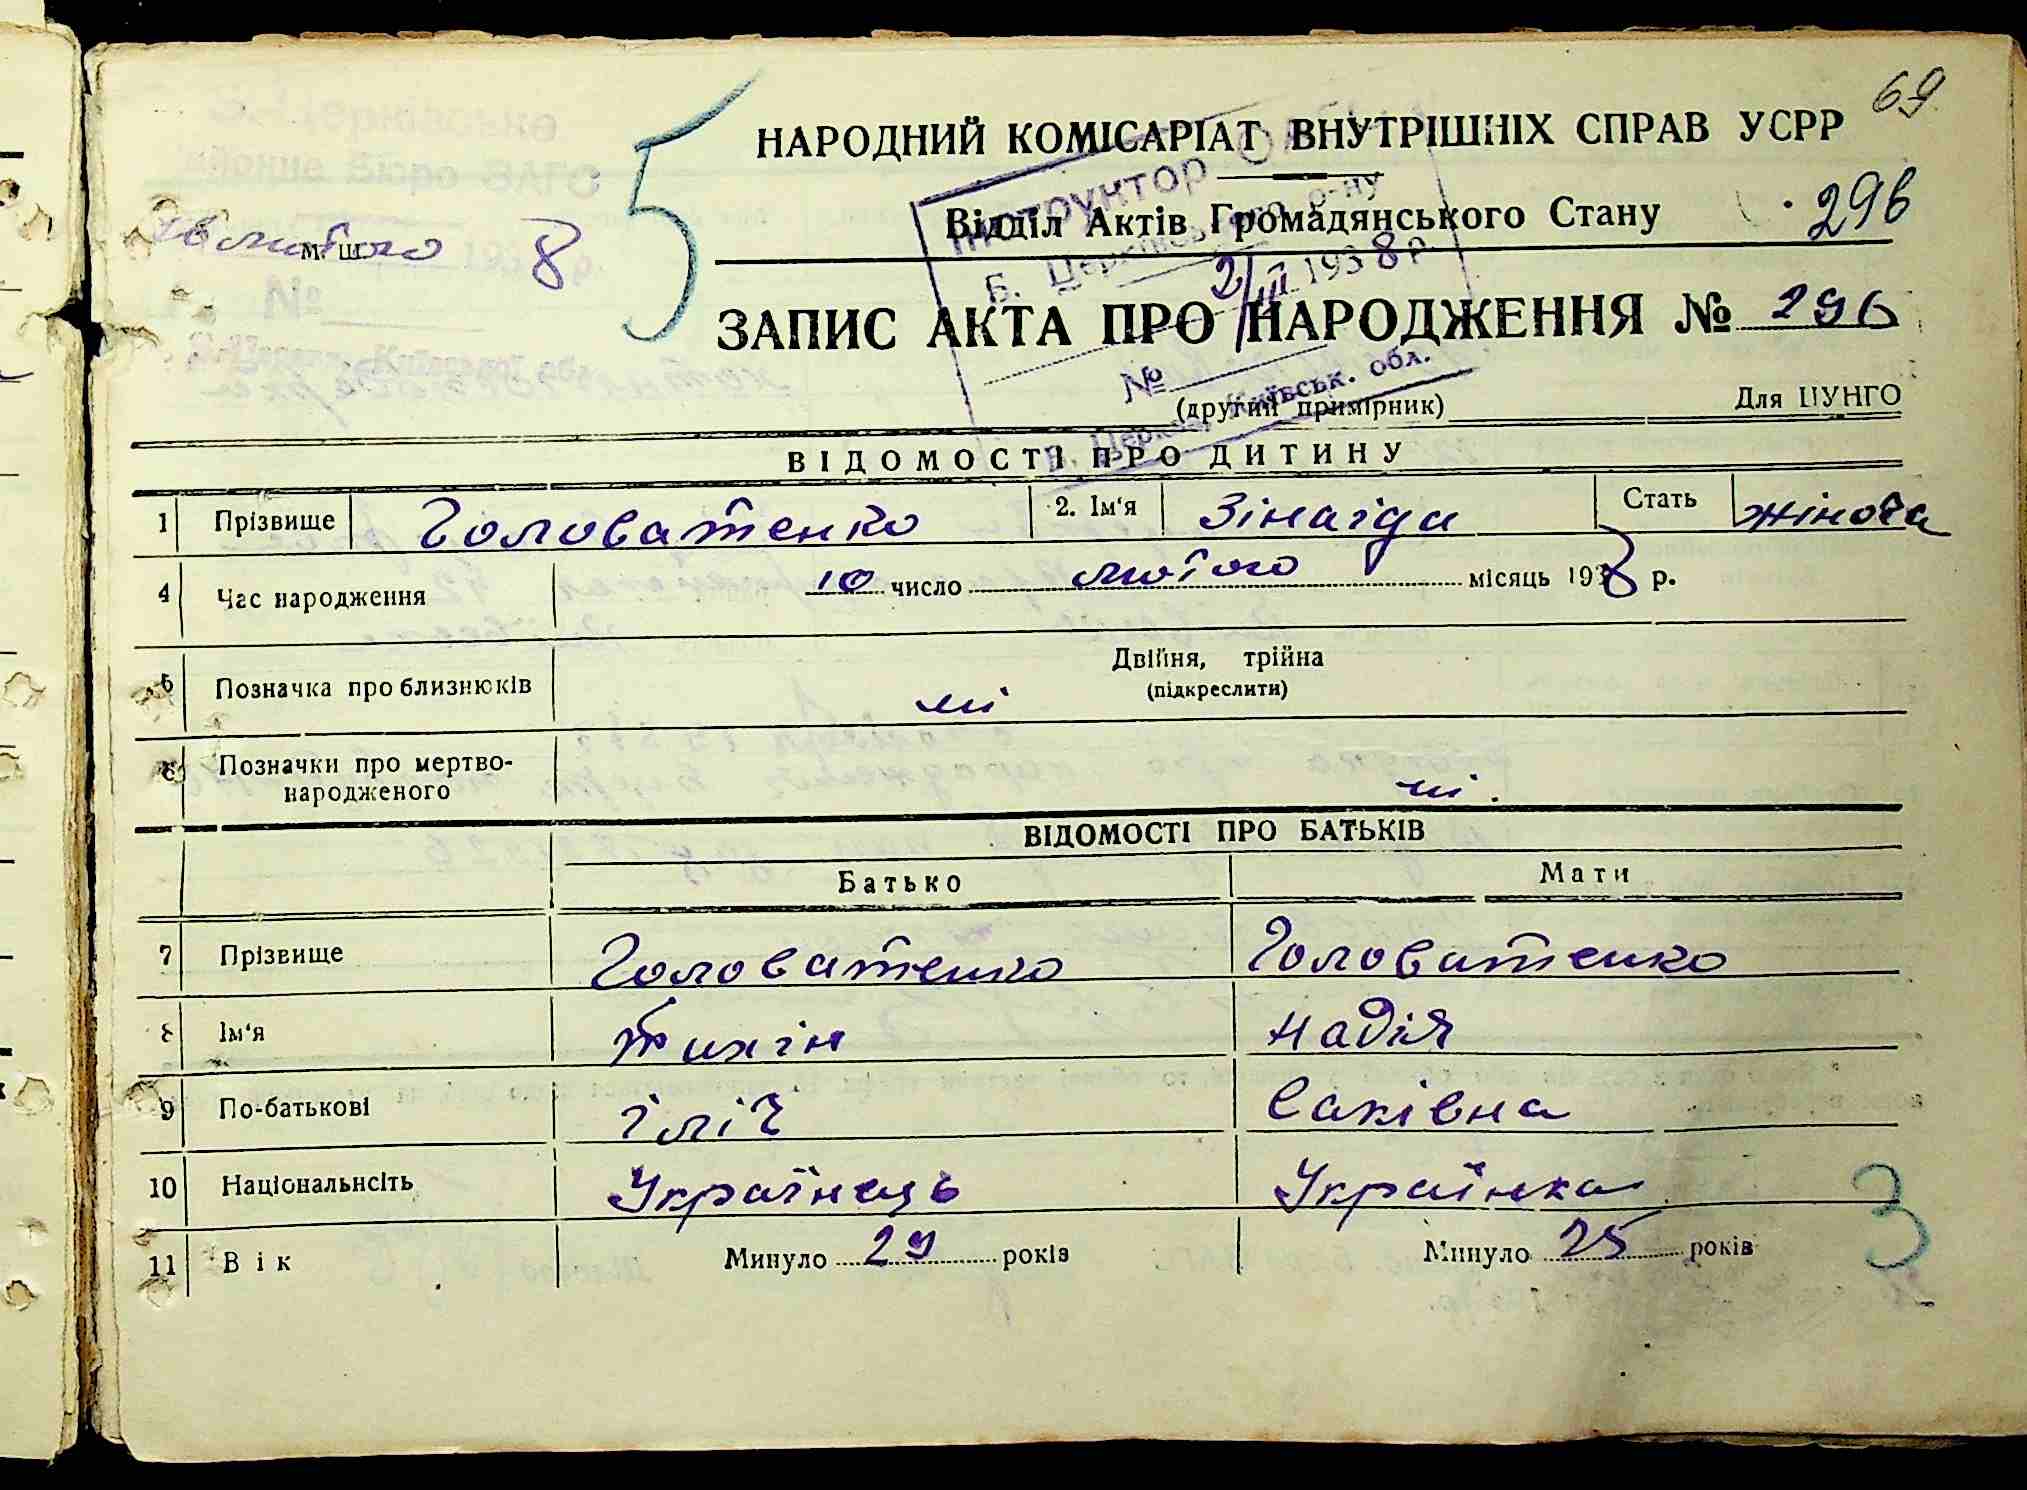 69
НАРОДНИЙ КОМІСАРІАТ ВНУТРІШНІХ СПРАВ УСРР
5
Відділ Актів Громадянського Стану
296
лютого 1938 р.
м. ш.
Інструктор
Б. Церківськ о-ну
2/III 1938 р.
№
Київськ. обл.
ЗАПИС АКТА ПРО НАРОДЖЕННЯ № 296
(другий примірник)
Для ЦУНГО
ВІДОМОСТІ ПРО ДИТИНУ
1 Прізвище Головатенко 2. Ім'я Зінаіда Стать жіноча
4 Час народження 10 число лютого місяць 1938 р.
5 Позначка про близнюків Двійня, трійна
(підкреслити)
ні
6 Позначки про мертво-
народженого ні.
ВІДОМОСТІ ПРО БАТЬКІВ
Батько Мати
7 Прізвище Головатенко Головатенко
8 Ім'я Тихін Надія
9 По-батькові Іліч Саківна
10 Національнсіть Українець Українка
11 Вік Минуло 29 років Минуло 25 років
3